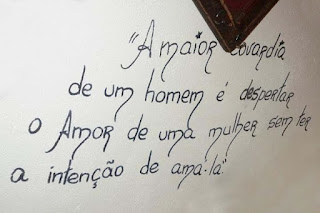 "A maior covardia
de um homem é despertar
o Amor de uma mulher sem ter
a intenção de ama-la"